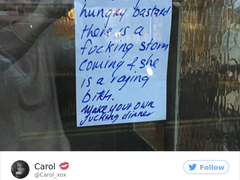 hungry bastard
there is a
fucking storm
coming & she
is a raging
bitch.
Make your own
fucking dinner
Carol 💋
@Carol_xox
Follow